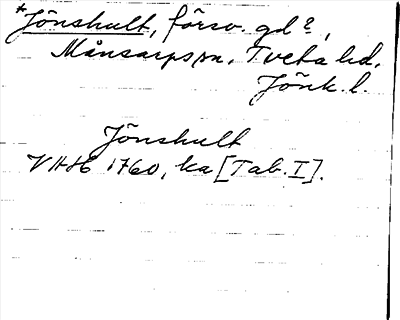 *Jönshult, försv. gd?,
Månsarps sn, Tveta hd,
Jönk. l.
Jönshult
VHAH 1760, ka [Tab. I].